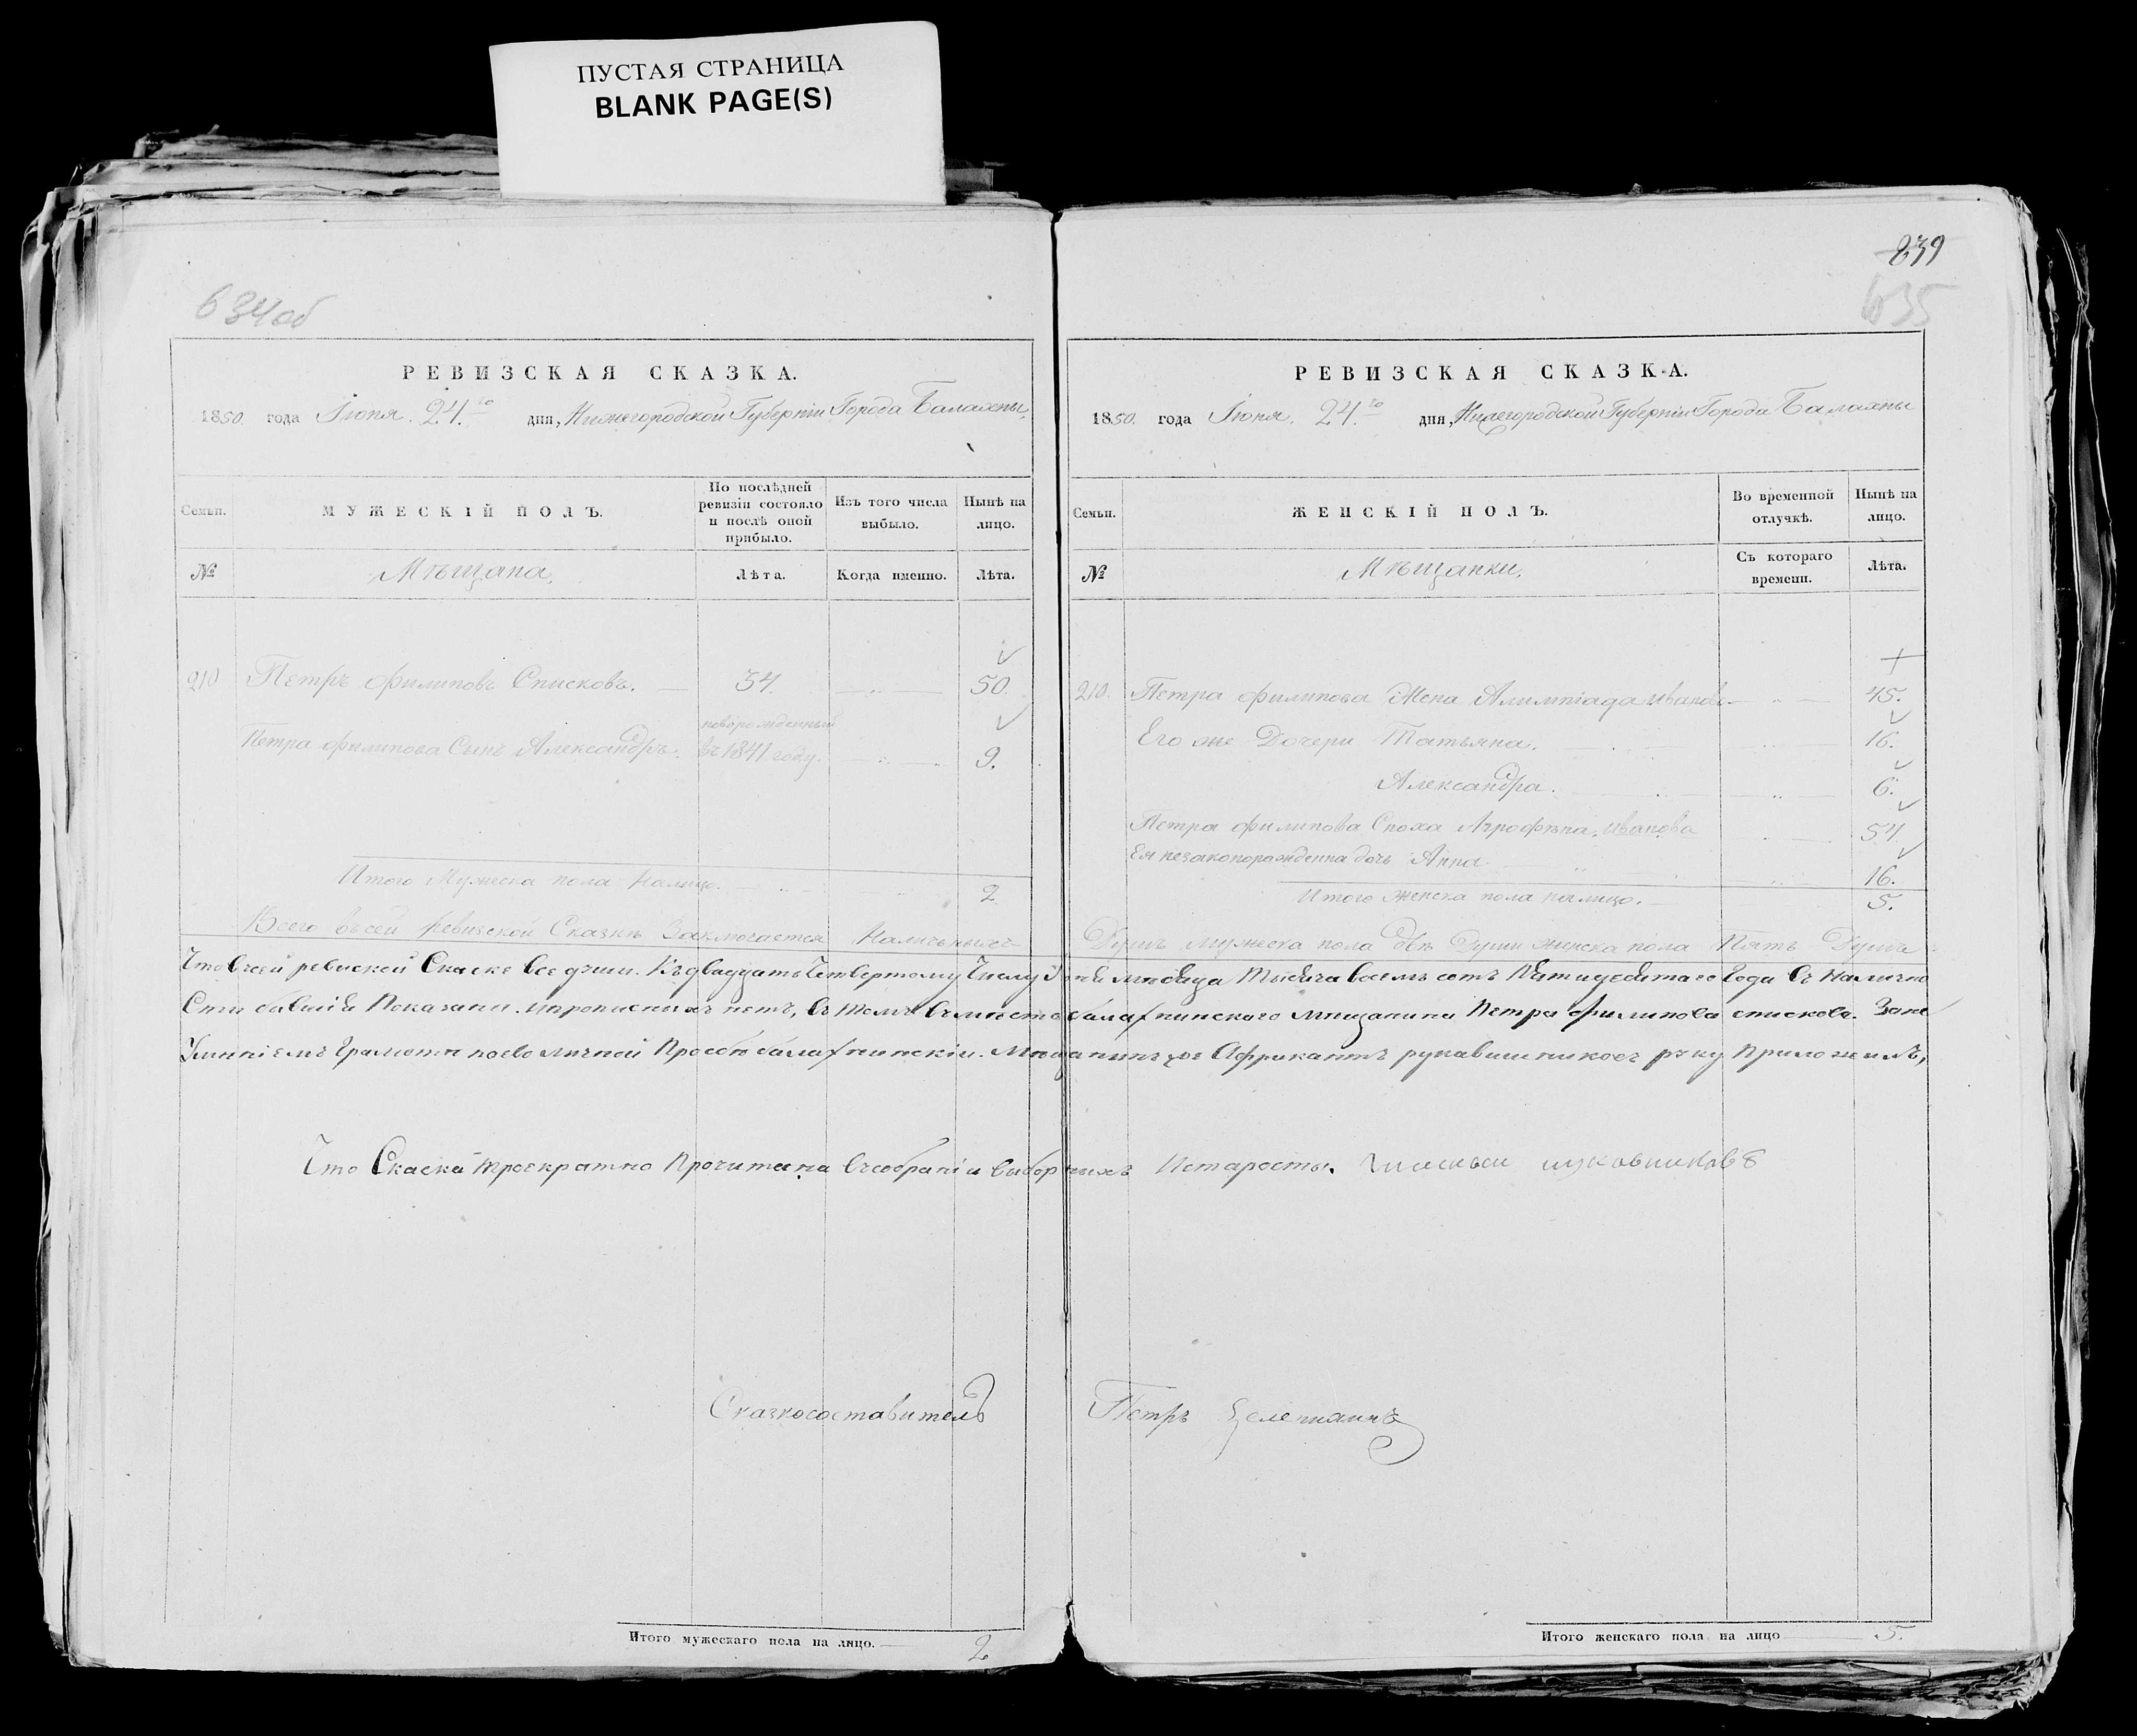 ПУСТАЯ СТРАНИЦА
BLANK PAGE(S)
634об
РЕВИЗСКАЯ СКАЗКА.
1850. года Іюня. 24.го дня, Нижегородской Губерніи Города Балахны,
Семьи. МУЖЕСКІЙ ПОЛЪ. По послѣдней ревизіи состояло и послѣ оной прибыло. Изъ того числа выбыло. Нынѣ на лицо.
№ Мѣщана, Лѣта. Когда именно. Лѣта.
210. Петръ Филиповъ Списковъ. 34. 50.
новорожденный
Петра Филипова Сынъ Александръ. въ 1841 году. 9.
Итого Мужеска пола налицо. 2.
839
635
РЕВИЗСКАЯ СКАЗКА.
1850. года Іюня. 24.го дня, Нижегородской Губерніи Города Балахны
Семьи. ЖЕНСКІЙ ПОЛЪ. Во временной отлучкѣ. Нынѣ на лицо.
№ Мѣщанки. Съ котораго времени. Лѣта.
210. Петра Филипова Жена Алимпіада Иванова 45.
Его же Дочери Татьяна. 16.
Александра. 6.
Петра Филипова Сноха Агрофѣна Иванова 54.
Ея незаконорожденна дочь Анна 16.
Итого женска пола налицо. 5.
Всего въ сей ревизской Сказкѣ Заключается Наличныхъ Душъ мужеска пола двѣ Души женска пола Пять Душъ
Что всей ревиской Скаске все души. Къ двадцать Четвертому Числу Юня месяца Тысяча восемъ сотъ Пятидесятаго Года въ Налично
Сти бывшія Показаны. и прописныхъ нетъ, въ томъ вместо балахнинскаго мещанина Петра Филипова спискова. За не
Умѣніемъ Грамоты по ево личной Прозбе балахнинскіи. Мещанинъ Африкантъ рукавишниковъ руку Приложилъ,
Что Скаска троекратно Прочитана в собраніи выборныхъ И старосты.
Сказкосоставитель Петръ
Итого мужескаго пола на лицо. 2
Итого женскаго пола на лицо 5.